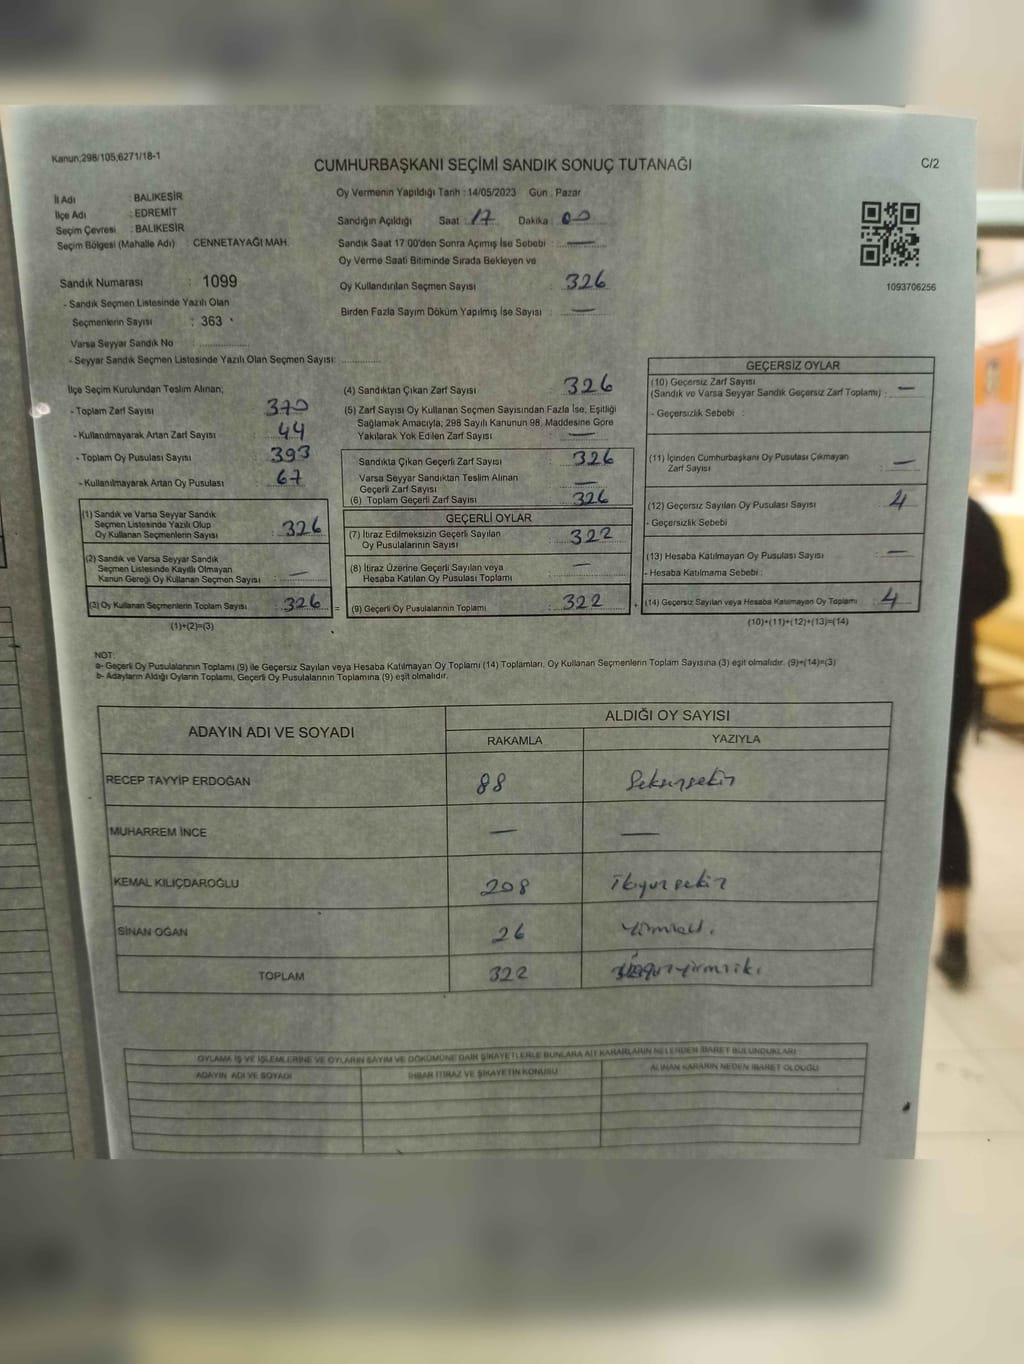 Kanun;298/105,6271/18-1
CUMHURBAŞKANI SEÇİMİ SANDIK SONUÇ TUTANAĞI
C/2
İl Adı : BALIKESİR
İlçe Adı : EDREMİT
Seçim Çevresi : BALIKESİR
Seçim Bölgesi (Mahalle Adı) : CENNETAYAĞI MAH.
Oy Vermenin Yapıldığı Tarih : 14/05/2023 Gün : Pazar
Sandığın Açıldığı Saat : 17 Dakika : 00
Sandık Saat 17:00'den Sonra Açımış İse Sebebi : —
Oy Verme Saati Bitiminde Sırada Bekleyen ve
Oy Kullandırılan Seçmen Sayısı : 326
Birden Fazla Sayım Döküm Yapılmış İse Sayısı : —
1093706256
Sandık Numarası : 1099
- Sandık Seçmen Listesinde Yazılı Olan
Seçmenlerin Sayısı : 363
Varsa Seyyar Sandık No :
- Seyyar Sandık Seçmen Listesinde Yazılı Olan Seçmen Sayısı:
İlçe Seçim Kurulundan Teslim Alınan;
- Toplam Zarf Sayısı : 370
- Kullanılmayarak Artan Zarf Sayısı : 44
- Toplam Oy Pusulası Sayısı : 393
- Kullanılmayarak Artan Oy Pusulası : 67
(1) Sandık ve Varsa Seyyar Sandık
Seçmen Listesinde Yazılı Olup
Oy Kullanan Seçmenlerin Sayısı : 326
(2) Sandık ve Varsa Seyyar Sandık
Seçmen Listesinde Kayıtlı Olmayan
Kanun Gereği Oy Kullanan Seçmen Sayısı : —
(3) Oy Kullanan Seçmenlerin Toplam Sayısı : 326 =
(1)+(2)=(3)
(4) Sandıktan Çıkan Zarf Sayısı : 326
(5) Zarf Sayısı Oy Kullanan Seçmen Sayısından Fazla İse, Eşitliği
Sağlamak Amacıyla; 298 Sayılı Kanunun 98. Maddesine Göre
Yakılarak Yok Edilen Zarf Sayısı : —
Sandıkta Çıkan Geçerli Zarf Sayısı : 326
Varsa Seyyar Sandıktan Teslim Alınan
Geçerli Zarf Sayısı : —
(6) Toplam Geçerli Zarf Sayısı : 326
GEÇERLİ OYLAR
(7) İtiraz Edilmeksizin Geçerli Sayılan
Oy Pusulalarının Sayısı : 322
(8) İtiraz Üzerine Geçerli Sayılan veya
Hesaba Katılan Oy Pusulası Toplamı : —
(9) Geçerli Oy Pusulalarının Toplamı : 322 +
GEÇERSİZ OYLAR
(10) Geçersiz Zarf Sayısı
(Sandık ve Varsa Seyyar Sandık Geçersiz Zarf Toplamı) : —
- Geçersizlik Sebebi :
(11) İçinden Cumhurbaşkanı Oy Pusulası Çıkmayan
Zarf Sayısı : —
(12) Geçersiz Sayılan Oy Pusulası Sayısı : 4
- Geçersizlik Sebebi
(13) Hesaba Katılmayan Oy Pusulası Sayısı : —
- Hesaba Katılmama Sebebi :
(14) Geçersiz Sayılan veya Hesaba Katılmayan Oy Toplamı : 4
(10)+(11)+(12)+(13)=(14)
NOT:
a- Geçerli Oy Pusulalarının Toplamı (9) ile Geçersiz Sayılan veya Hesaba Katılmayan Oy Toplamı (14) Toplamları, Oy Kullanan Seçmenlerin Toplam Sayısına (3) eşit olmalıdır. (9)+(14)=(3)
b- Adayların Aldığı Oyların Toplamı, Geçerli Oy Pusulalarının Toplamına (9) eşit olmalıdır.
ADAYIN ADI VE SOYADI
ALDIĞI OY SAYISI
RAKAMLA YAZIYLA
RECEP TAYYİP ERDOĞAN 88 Seksensekiz
MUHARREM İNCE — —
KEMAL KILIÇDAROĞLU 208 ikiyüzsekiz
SİNAN OĞAN 26 Yirmialtı.
TOPLAM 322 üçyüzyirmiiki
OYLAMA İŞ VE İŞLEMLERİNE VE OYLARIN SAYIM VE DÖKÜMÜNE DAİR ŞİKAYETLERLE BUNLARA AİT KARARLARIN NELERDEN İBARET BULUNDUKLARI
ADAYIN ADI VE SOYADI
İHBAR İTİRAZ VE ŞİKAYETİN KONUSU
ALINAN KARARIN NEDEN İBARET OLDUĞU